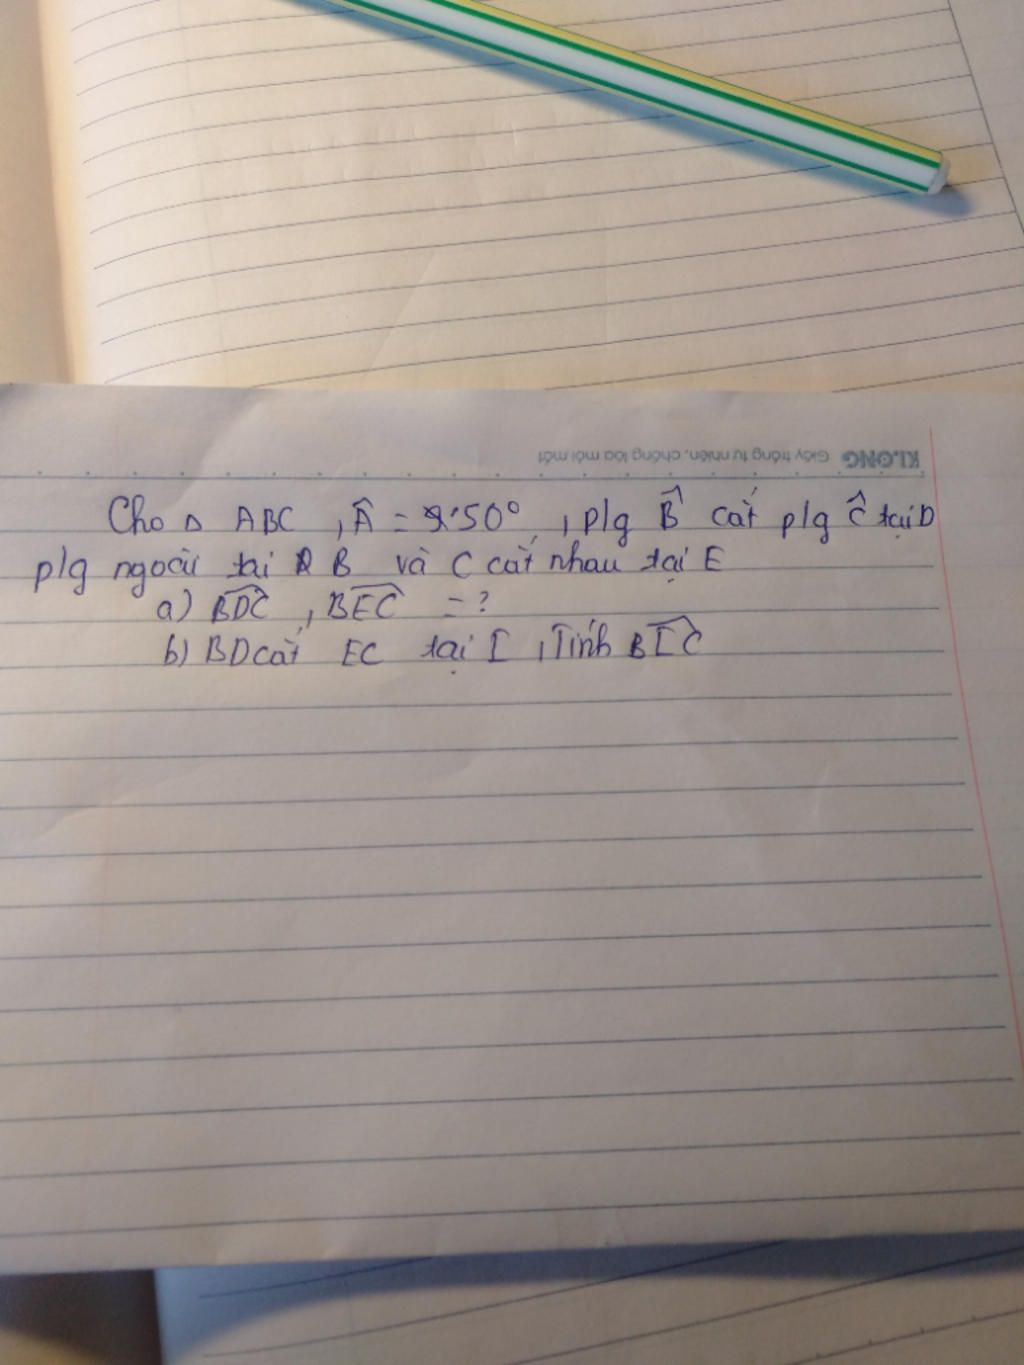 KLONG Giấy trắng tự nhiên, chống lóa mỏi mắt
Cho Δ ABC , Â = 50° , p/g B̂ cắt p/g Ĉ tại D
p/g ngoài tại B và C cắt nhau tại E
a) BDC , BEC = ?
b) BD cắt EC tại I , Tính BIC